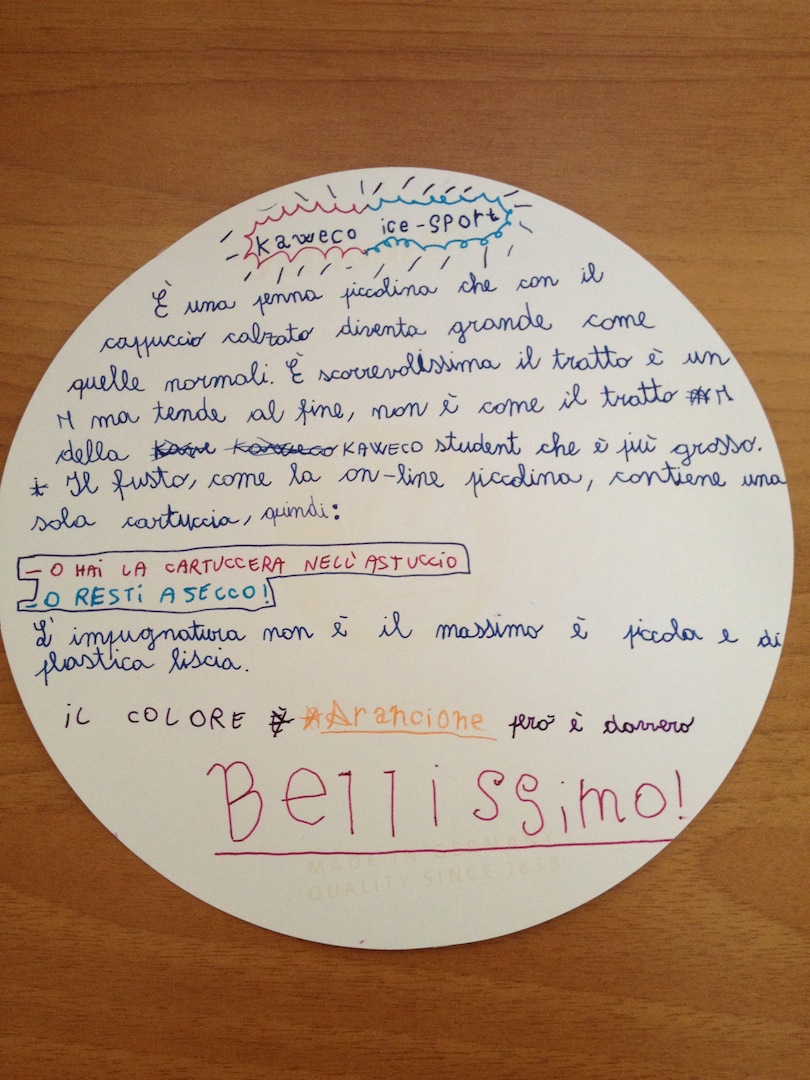 Kaweco ice-sport
È una penna piccolina che con il
cappuccio calzato diventa grande come
quelle normali. È scorrevolissima il tratto è un
M ma tende al fine, non è come il tratto M
della KAWECO student che è più grosso.
Il fusto, come la on-line piccolina, contiene una
sola cartuccia, quindi:
- O HAI LA CARTUCCERA NELL'ASTUCCIO
- O RESTI A SECCO!
L'impugnatura non è il massimo è piccola e di
plastica liscia.
iL COLORE Arancione però è davvero
Bellissimo!
MADE IN GERMANY
QUALITY SINCE 1838